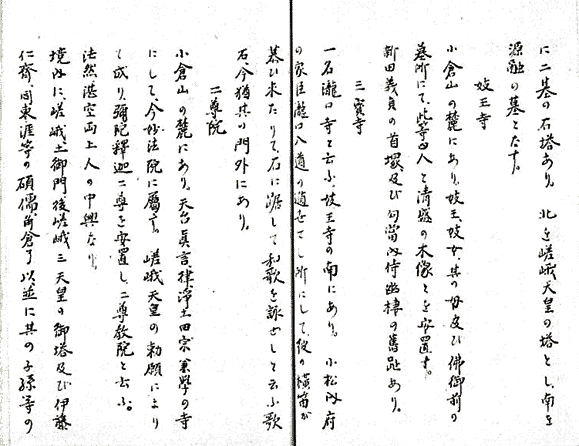 に二基の石塔あり。北を嵯峨天皇の塔とし、南を
源融の墓となす。
妓王寺
小倉山の麓にあり。妓王、妓女、其の母及び佛御前の
墓所にて、此等四人と清盛の木像とを安置す。
新田義貞の首塚、及び勾當内侍幽棲の舊趾あり。
三寶寺
一名瀧口寺と云ふ、妓王寺の南にあり。小松内府
の家臣瀧口入道の遁世せし所にして、彼の横笛が
慕ひ来たりて石に踞して和歌を詠ぜしと云ふ歌
石、今猶其の門外にあり。
二尊院
小倉山の麓にあり。天台、真言、律、浄土四宗兼學の寺
にして、今妙法院に屬す。嵯峨天皇の勅願により
て成り、彌陀釋迦二尊を安置し、二尊教院と云ふ。
法然湛空両上人の中興なり。
境内に嵯峨、土御門、後嵯峨三天皇の御塔及び伊藤
仁齋、同東涯等の碩儒、角倉了以並に其の子孫等の